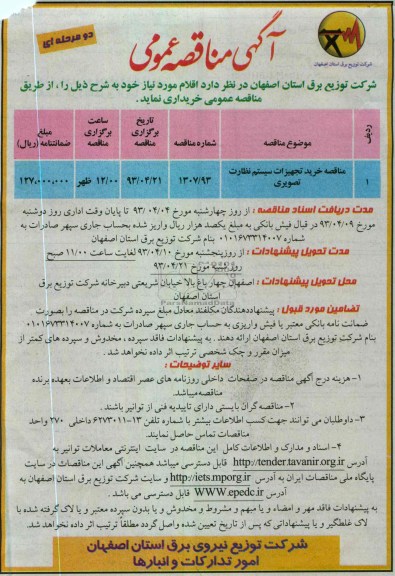 دو مرحله ای
آگهی مناقصه عمومی
شرکت توزیع برق استان اصفهان
شرکت توزیع برق استان اصفهان در نظر دارد اقلام مورد نیاز خود به شرح ذیل را، از طریق
مناقصه عمومی خریداری نماید.
ردیف
موضوع مناقصه
شماره مناقصه
تاریخ برگزاری مناقصه
ساعت برگزاری مناقصه
مبلغ ضمانتنامه (ریال)
۱
مناقصه خرید تجهیزات سیستم نظارت تصویری
۱۳۰۷/۹۳
۹۳/۰۴/۲۱
۱۲/۰۰ ظهر
۱۲۷,۰۰۰,۰۰۰
مدت دریافت اسناد مناقصه : از روز چهارشنبه مورخ ۹۳/۰۴/۰۴ تا پایان وقت اداری روز دوشنبه
مورخ ۹۳/۰۴/۰۹ در قبال فیش بانکی به مبلغ یکصد هزار ریال واریز شده بحساب جاری سپهر صادرات به
شماره ۰۱۰۱۶۷۳۳۱۴۰۰۷ بنام شرکت توزیع برق استان اصفهان
مدت تحویل پیشنهادات : از روز پنجشنبه مورخ ۹۳/۰۴/۱۰ لغایت ساعت ۱۱/۰۰ صبح
روز شنبه مورخ ۹۳/۰۴/۲۱
محل تحویل پیشنهادات : اصفهان چهار باغ بالا خیابان شریعتی دبیرخانه شرکت توزیع برق
استان اصفهان
ParsNamadData
تضامین مورد قبول : پیشنهاددهندگان مکلفند معادل مبلغ سپرده شرکت در مناقصه را بصورت
ضمانت نامه بانکی معتبر یا فیش واریزی به حساب جاری سپهر صادرات به شماره ۰۱۰۱۶۷۳۳۱۴۰۰۷
بنام شرکت توزیع برق استان اصفهان ارائه دهند . به پیشنهادات فاقد سپرده ، مخدوش و سپرده های کمتر از
میزان مقرر و چک شخصی ترتیب اثر داده نخواهد شد.
سایر توضیحات :
۱-هزینه درج آگهی مناقصه در صفحات داخلی روزنامه های عصر اقتصاد و اطلاعات بعهده برنده
مناقصه میباشد.
۲-مناقصه گران بایستی دارای تاییدیه فنی از توانیر باشند .
۳-داوطلبان می توانند جهت کسب اطلاعات بیشتر با شماره تلفن ۱۳-۶۲۷۳۰۱۱ داخلی ۲۷۰ واحد
مناقصات تماس حاصل نمایند.
۴-اسناد و مدارک و اطلاعات کامل این مناقصه در سایت اینترنتی معاملات توانیر به
آدرس http://tender.tavanir.org.ir قابل دسترسی میباشد همچنین آگهی این مناقصات در سایت
پایگاه ملی مناقصات ایران به آدرس http://iets.mporg.ir و سایت شرکت توزیع برق استان اصفهان به
آدرس WWW.epedc.ir قابل دسترسی می باشد .
به پیشنهادات فاقد مهر و امضاء و یا مبهم و مشروط و مخدوش و یا بدون سپرده معتبر و یا لاک گرفته شده با
لاک غلطگیر و یا پیشنهاداتی که پس از تاریخ تعیین شده واصل گردد مطلقاً ترتیب اثر داده نخواهد شد.
شرکت توزیع نیروی برق استان اصفهان
امور تدارکات و انبارها